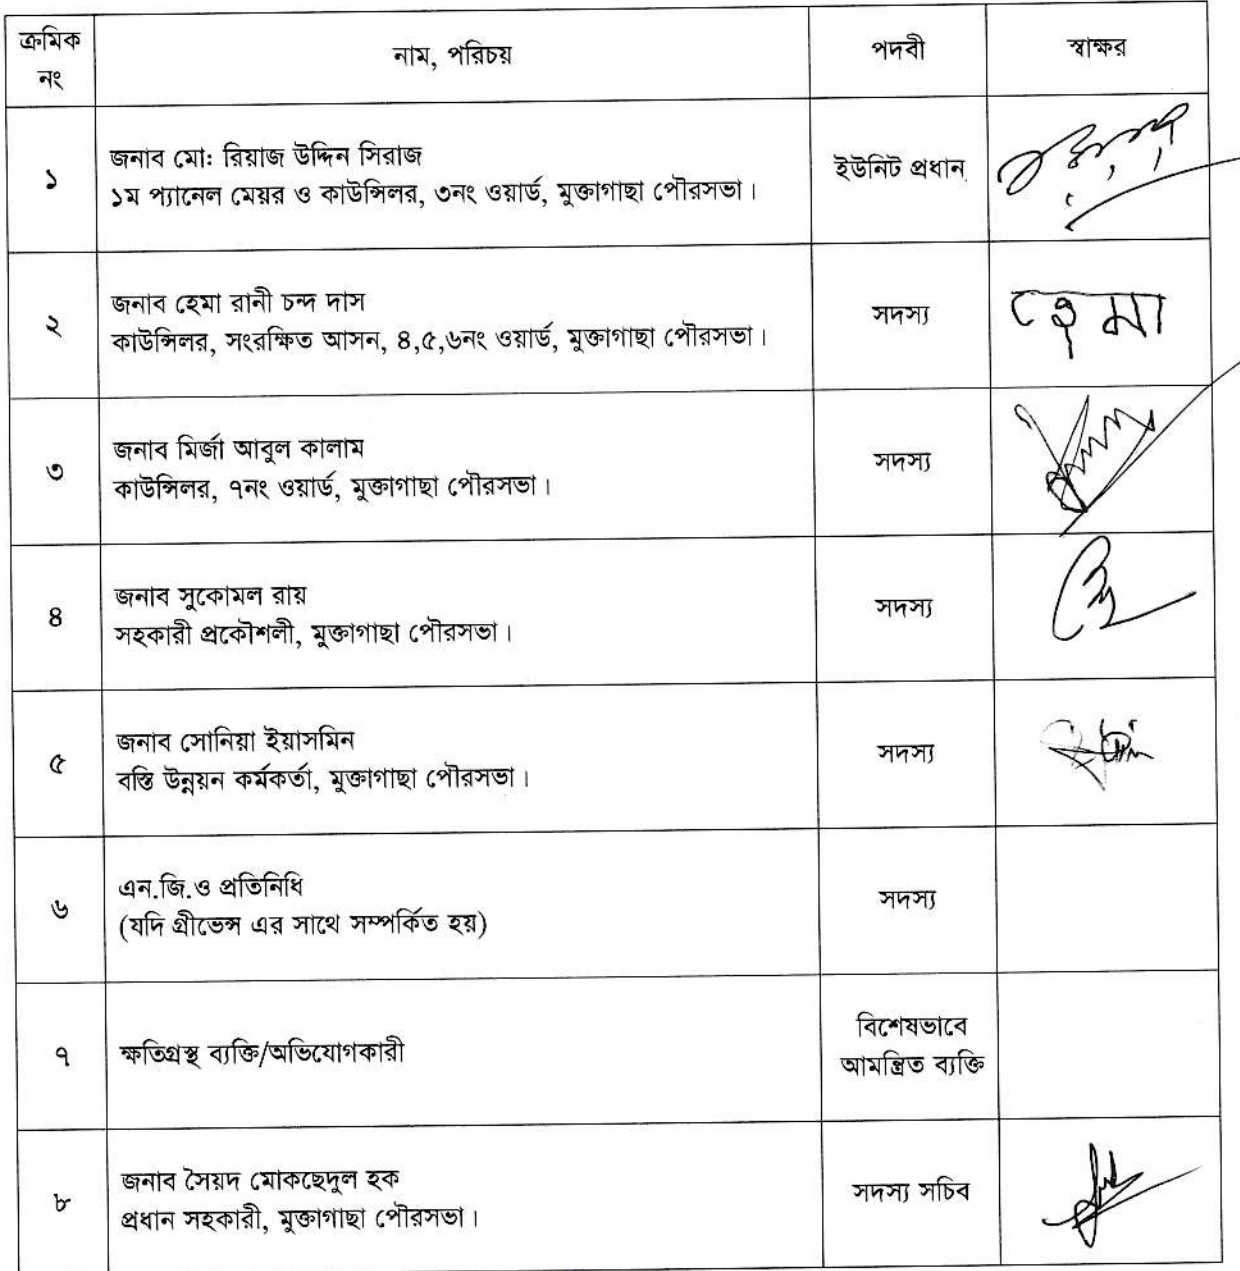 ক্রমিক নং
নাম, পরিচয়
পদবী
স্বাক্ষর
১
জনাব মো: রিয়াজ উদ্দিন সিরাজ
১ম প্যানেল মেয়র ও কাউন্সিলর, ৩নং ওয়ার্ড, মুক্তাগাছা পৌরসভা।
ইউনিট প্রধান
২
জনাব হেমা রানী চন্দ দাস
কাউন্সিলর, সংরক্ষিত আসন, ৪,৫,৬নং ওয়ার্ড, মুক্তাগাছা পৌরসভা।
সদস্য
হেমা
৩
জনাব মির্জা আবুল কালাম
কাউন্সিলর, ৭নং ওয়ার্ড, মুক্তাগাছা পৌরসভা।
সদস্য
৪
জনাব সুকোমল রায়
সহকারী প্রকৌশলী, মুক্তাগাছা পৌরসভা।
সদস্য
৫
জনাব সোনিয়া ইয়াসমিন
বস্তি উন্নয়ন কর্মকর্তা, মুক্তাগাছা পৌরসভা।
সদস্য
৬
এন.জি.ও প্রতিনিধি
(যদি গ্রীভেন্স এর সাথে সম্পর্কিত হয়)
সদস্য
৭
ক্ষতিগ্রস্থ ব্যক্তি/অভিযোগকারী
বিশেষভাবে
আমন্ত্রিত ব্যক্তি
৮
জনাব সৈয়দ মোকছেদুল হক
প্রধান সহকারী, মুক্তাগাছা পৌরসভা।
সদস্য সচিব